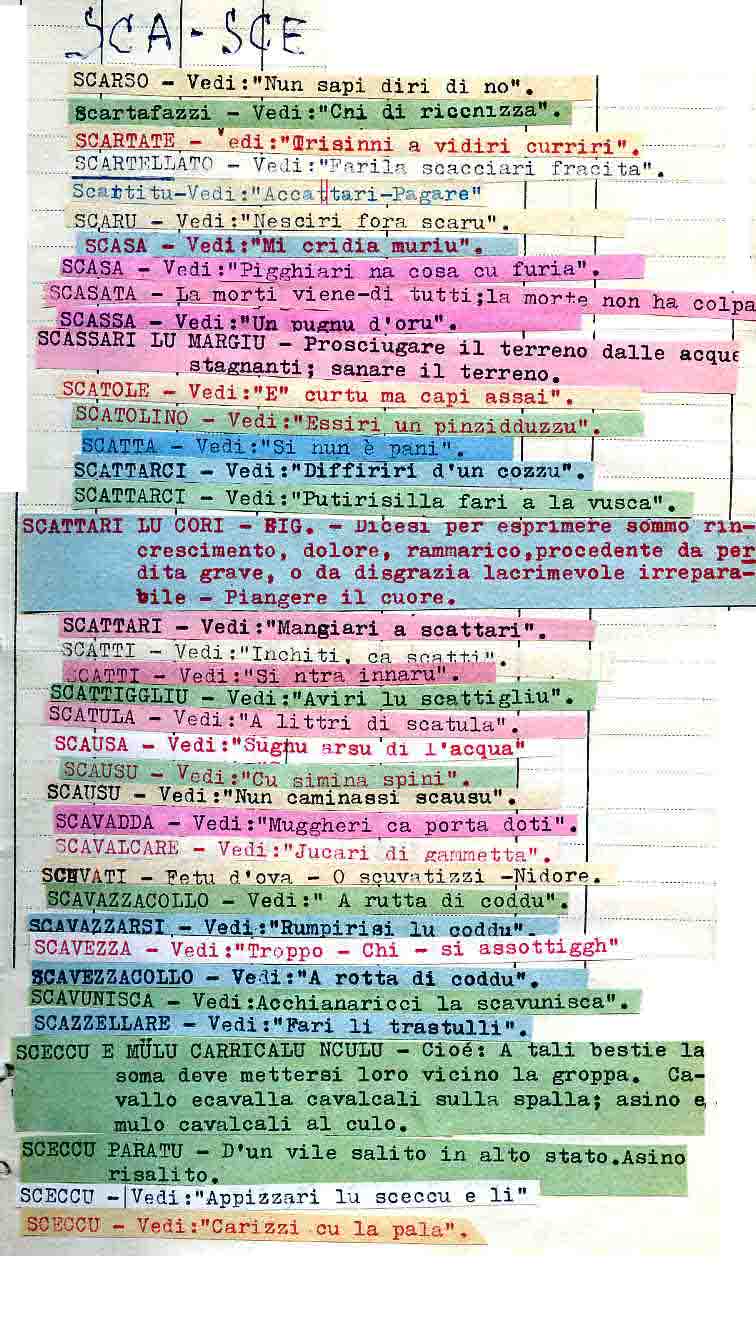 SCA - SCE
SCARSO - Vedi:"Nun sapi diri di no".
Scartafazzi - Vedi:"Cni di riccnizza".
SCARTATE - Vedi:"Trisinni a vidiri curriri".
SCARTELLATO - Vedi:"Farila scacciari fracita".
Scartitu-Vedi:"Accattari-Pagare"
SCARU - Vedi:"Nesciri fora scaru".
SCASA - Vedi:"Mi cridia muriu".
SCASA - Vedi:"Pigghiari na cosa cu furia".
SCASATA - La morti viene-di tutti;la morte non ha colpa
SCASSA - Vedi:"Un pugnu d'oru".
SCASSARI LU MARGIU - Prosciugare il terreno dalle acque
stagnanti; sanare il terreno.
SCATOLE - Vedi:"E" curtu ma capi assai".
SCATOLINO - Vedi:"Essiri un pinzidduzzu".
SCATTA - Vedi:"Si nun è pani".
SCATTARCI - Vedi:"Diffiriri d'un cozzu".
SCATTARCI - Vedi:"Putirisilla fari a la vusca".
SCATTARI LU CORI - FIG. - Dicesi per esprimere sommo rin-
crescimento, dolore, rammarico,procedente da per
dita grave, o da disgrazia lacrimevole irrepara-
bile - Piangere il cuore.
SCATTARI - Vedi:"Mangiari a scattari".
SCATTI - Vedi:"Inchiti, ca scatti".
SCATTI - Vedi:"Si ntra innaru".
SCATTIGGLIU - Vedi:"Aviri lu scattigliu".
SCATULA - Vedi:"A littri di scatula".
SCAUSA - Vedi:"Sughu arsu di l'acqua"
SCAUSU - Vedi:"Cu simina spini".
SCAUSU - Vedi:"Nun caminassi scausu".
SCAVADDA - Vedi:"Muggheri ca porta doti".
SCAVALCARE - Vedi:"Jucari di gammetta".
SCUVATI - Fetu d'ova - O scuvatizzi -Nidore.
SCAVAZZACOLLO - Vedi:" A rutta di coddu".
SCAVAZZARSI - Vedi:"Rumpirisi lu coddu".
SCAVEZZA - Vedi:"Troppo - Chi - si assottiggh"
SCAVEZZACOLLO - Vedi:"A rotta di coddu".
SCAVUNISCA - Vedi:Acchianaricci la scavunisca".
SCAZZELLARE - Vedi:"Fari li trastulli".
SCECCU E MULU CARRICALU NCULU - Cioé: A tali bestie la
soma deve mettersi loro vicino la groppa. Ca-
vallo ecavalla cavalcali sulla spalla; asino e
mulo cavalcali al culo.
SCECCU PARATU - D'un vile salito in alto stato.Asino
risalito.
SCECCU - Vedi:"Appizzari lu sceccu e li"
SCECCU - Vedi:"Carizzi cu la pala".